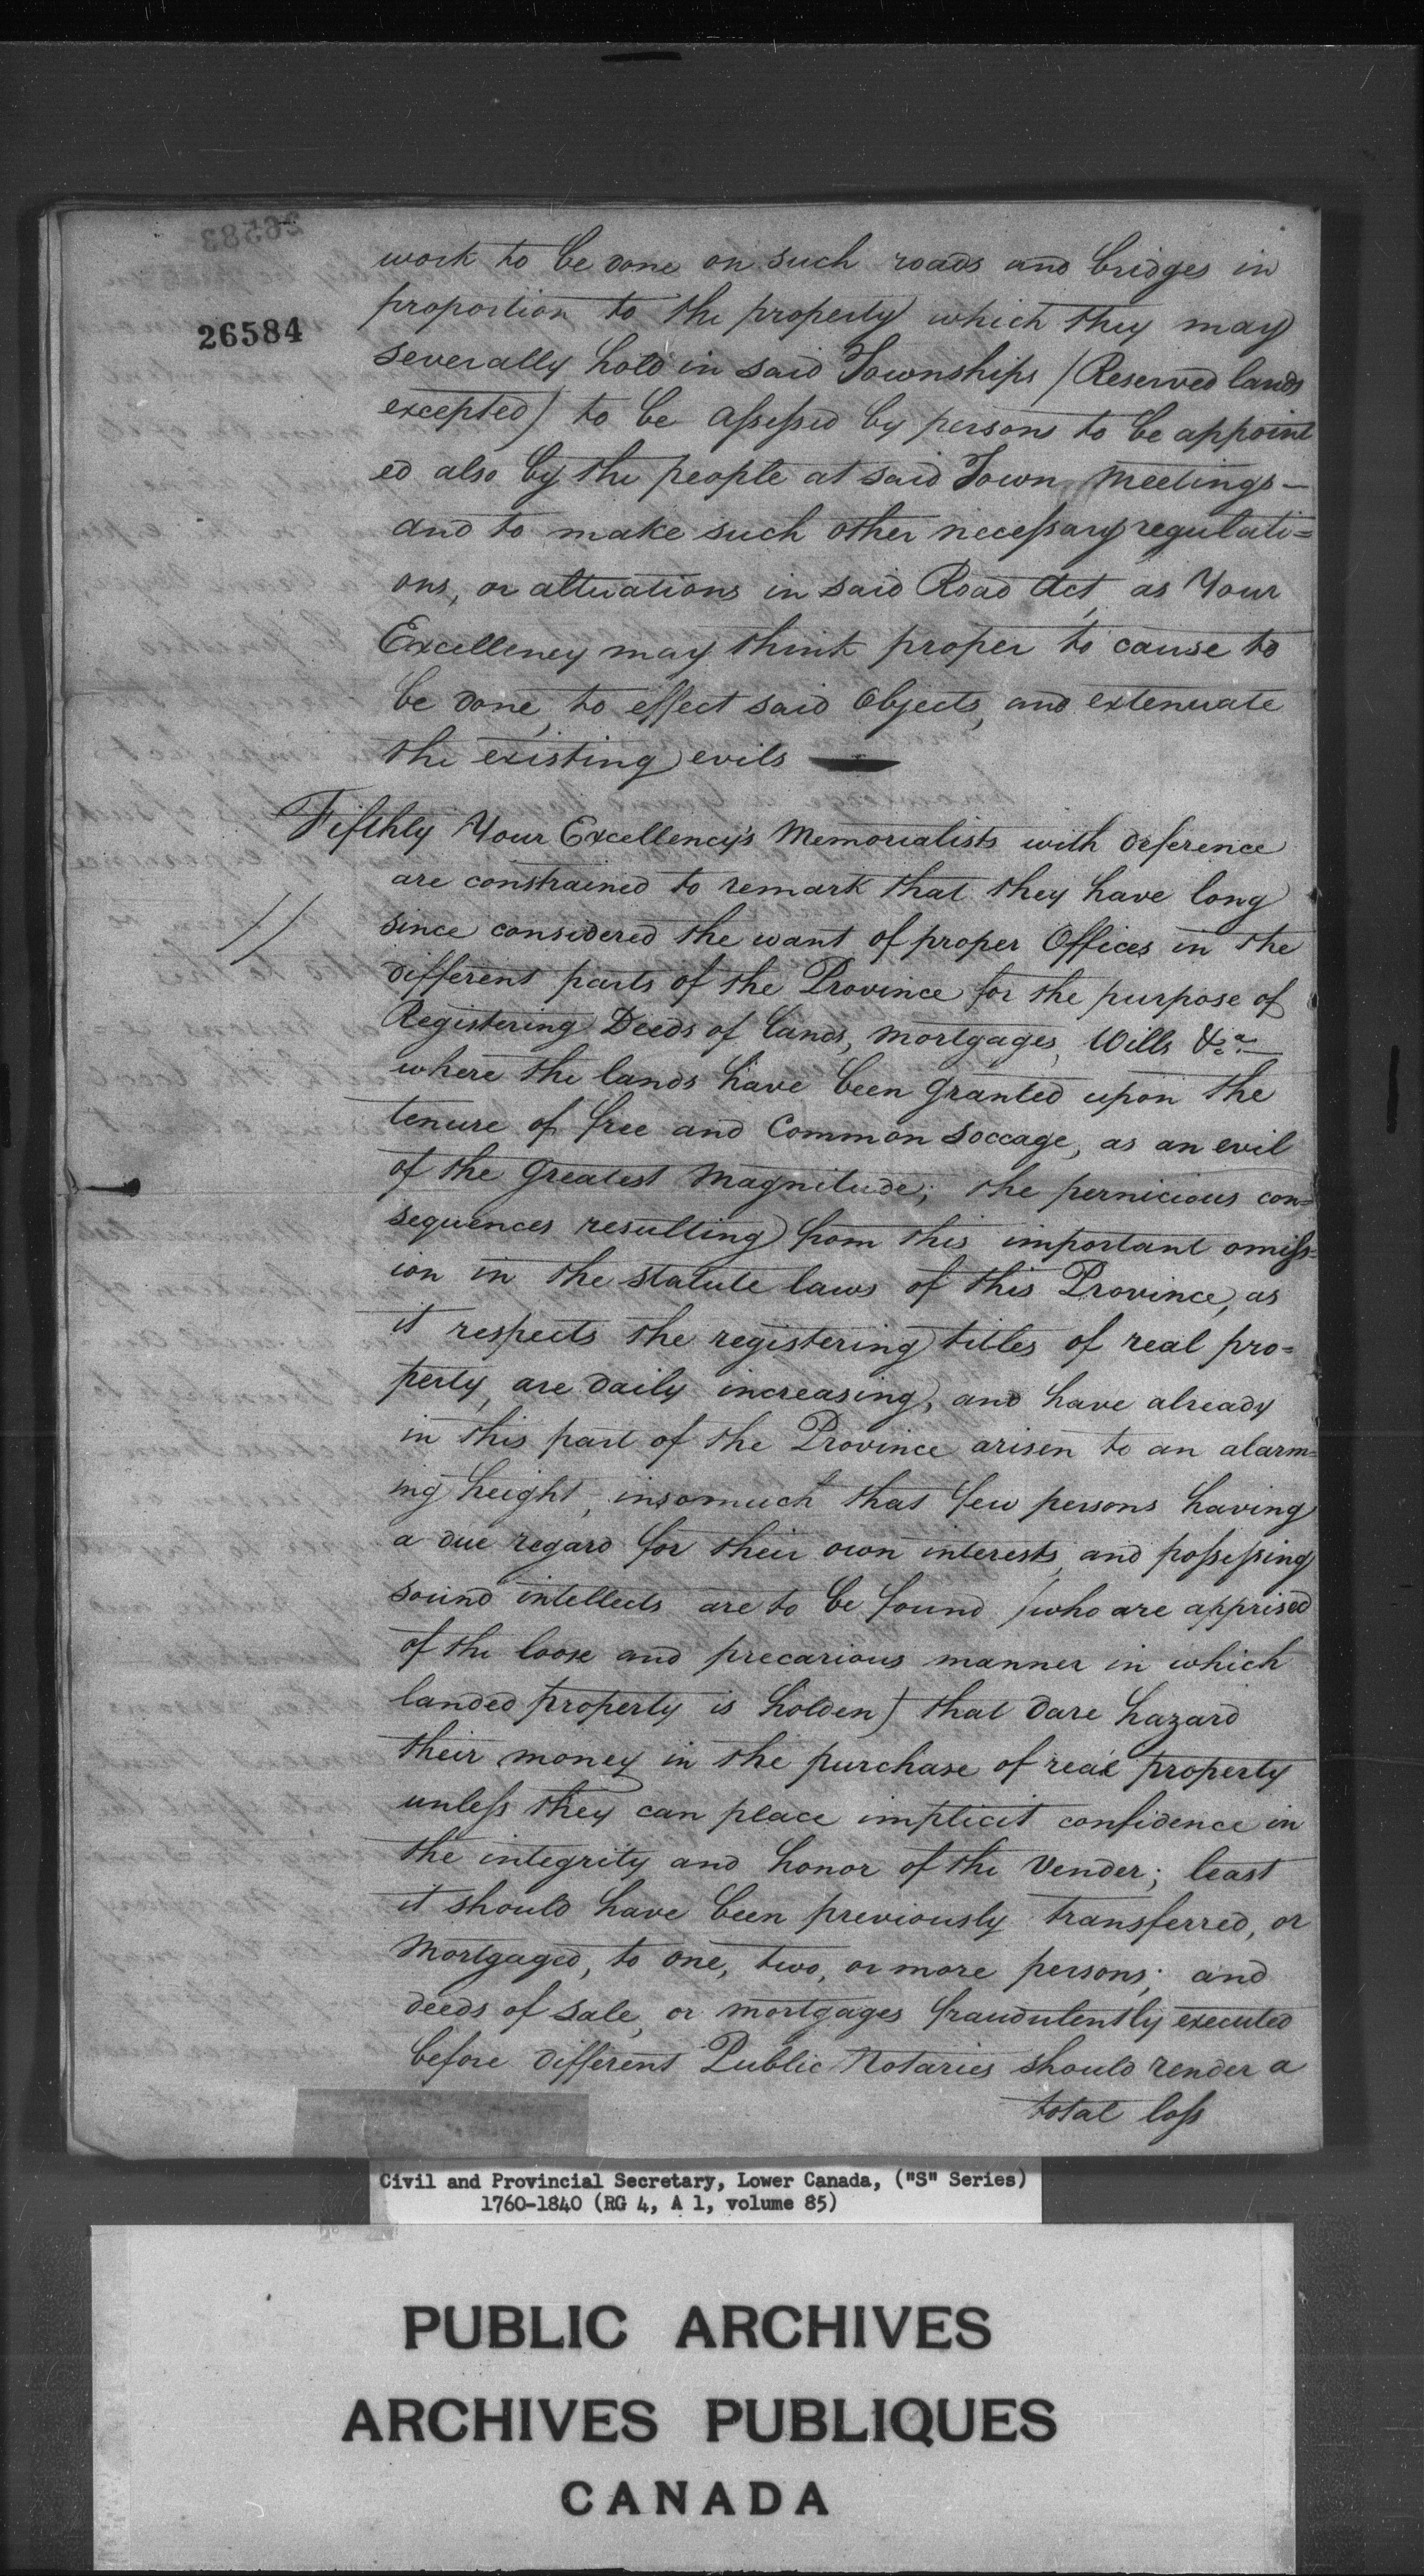 26583
26584
work to be done on such roads and bridges in
proportion to the property which they may
severally hold in said Townships (Reserved lands
excepted) to be assessed by persons to be appoint
ed also by the people at said Town Meetings —
and to make such other necessary regulati=
ons, or alterations in said Road Act, as Your
Excellency may think proper to cause to
be done, to effect said Objects, and extenuate
the existing evils —
Fifthly Your Excellency's Memorialists with deference
are constrained to remark that they have long
//
since considered the want of proper Offices in the
different parts of the Province for the purpose of
Registering Deeds of Lands, Mortgages, Wills &ca.—
where the lands have been granted upon the
tenure of free and Common Soccage, as an evil
of the greatest Magnitude; the pernicious con=
sequences resulting from this important omiss=
ion in the statute laws of this Province, as
it respects the registering titles of real pro=
perty, are daily increasing, and have already
in this part of the Province arisen to an alarm=
ing height, insomuch that few persons having
a due regard for their own interests, and possessing
sound intellects are to be found (who are apprised
of the loose and precarious manner in which
landed property is holden) that dare hazard
their money in the purchase of real property
unless they can place implicit confidence in
the integrity and honor of the Vender; least
it should have been previously transferred, or
Mortgaged, to one, two, or more persons; and
deeds of sale, or mortgages fraudulently executed
before different Public Notaries should render a
total loss
Civil and Provincial Secretary, Lower Canada, ("S" Series)
1760-1840 (RG 4, A 1, volume 85)
PUBLIC ARCHIVES
ARCHIVES PUBLIQUES
CANADA